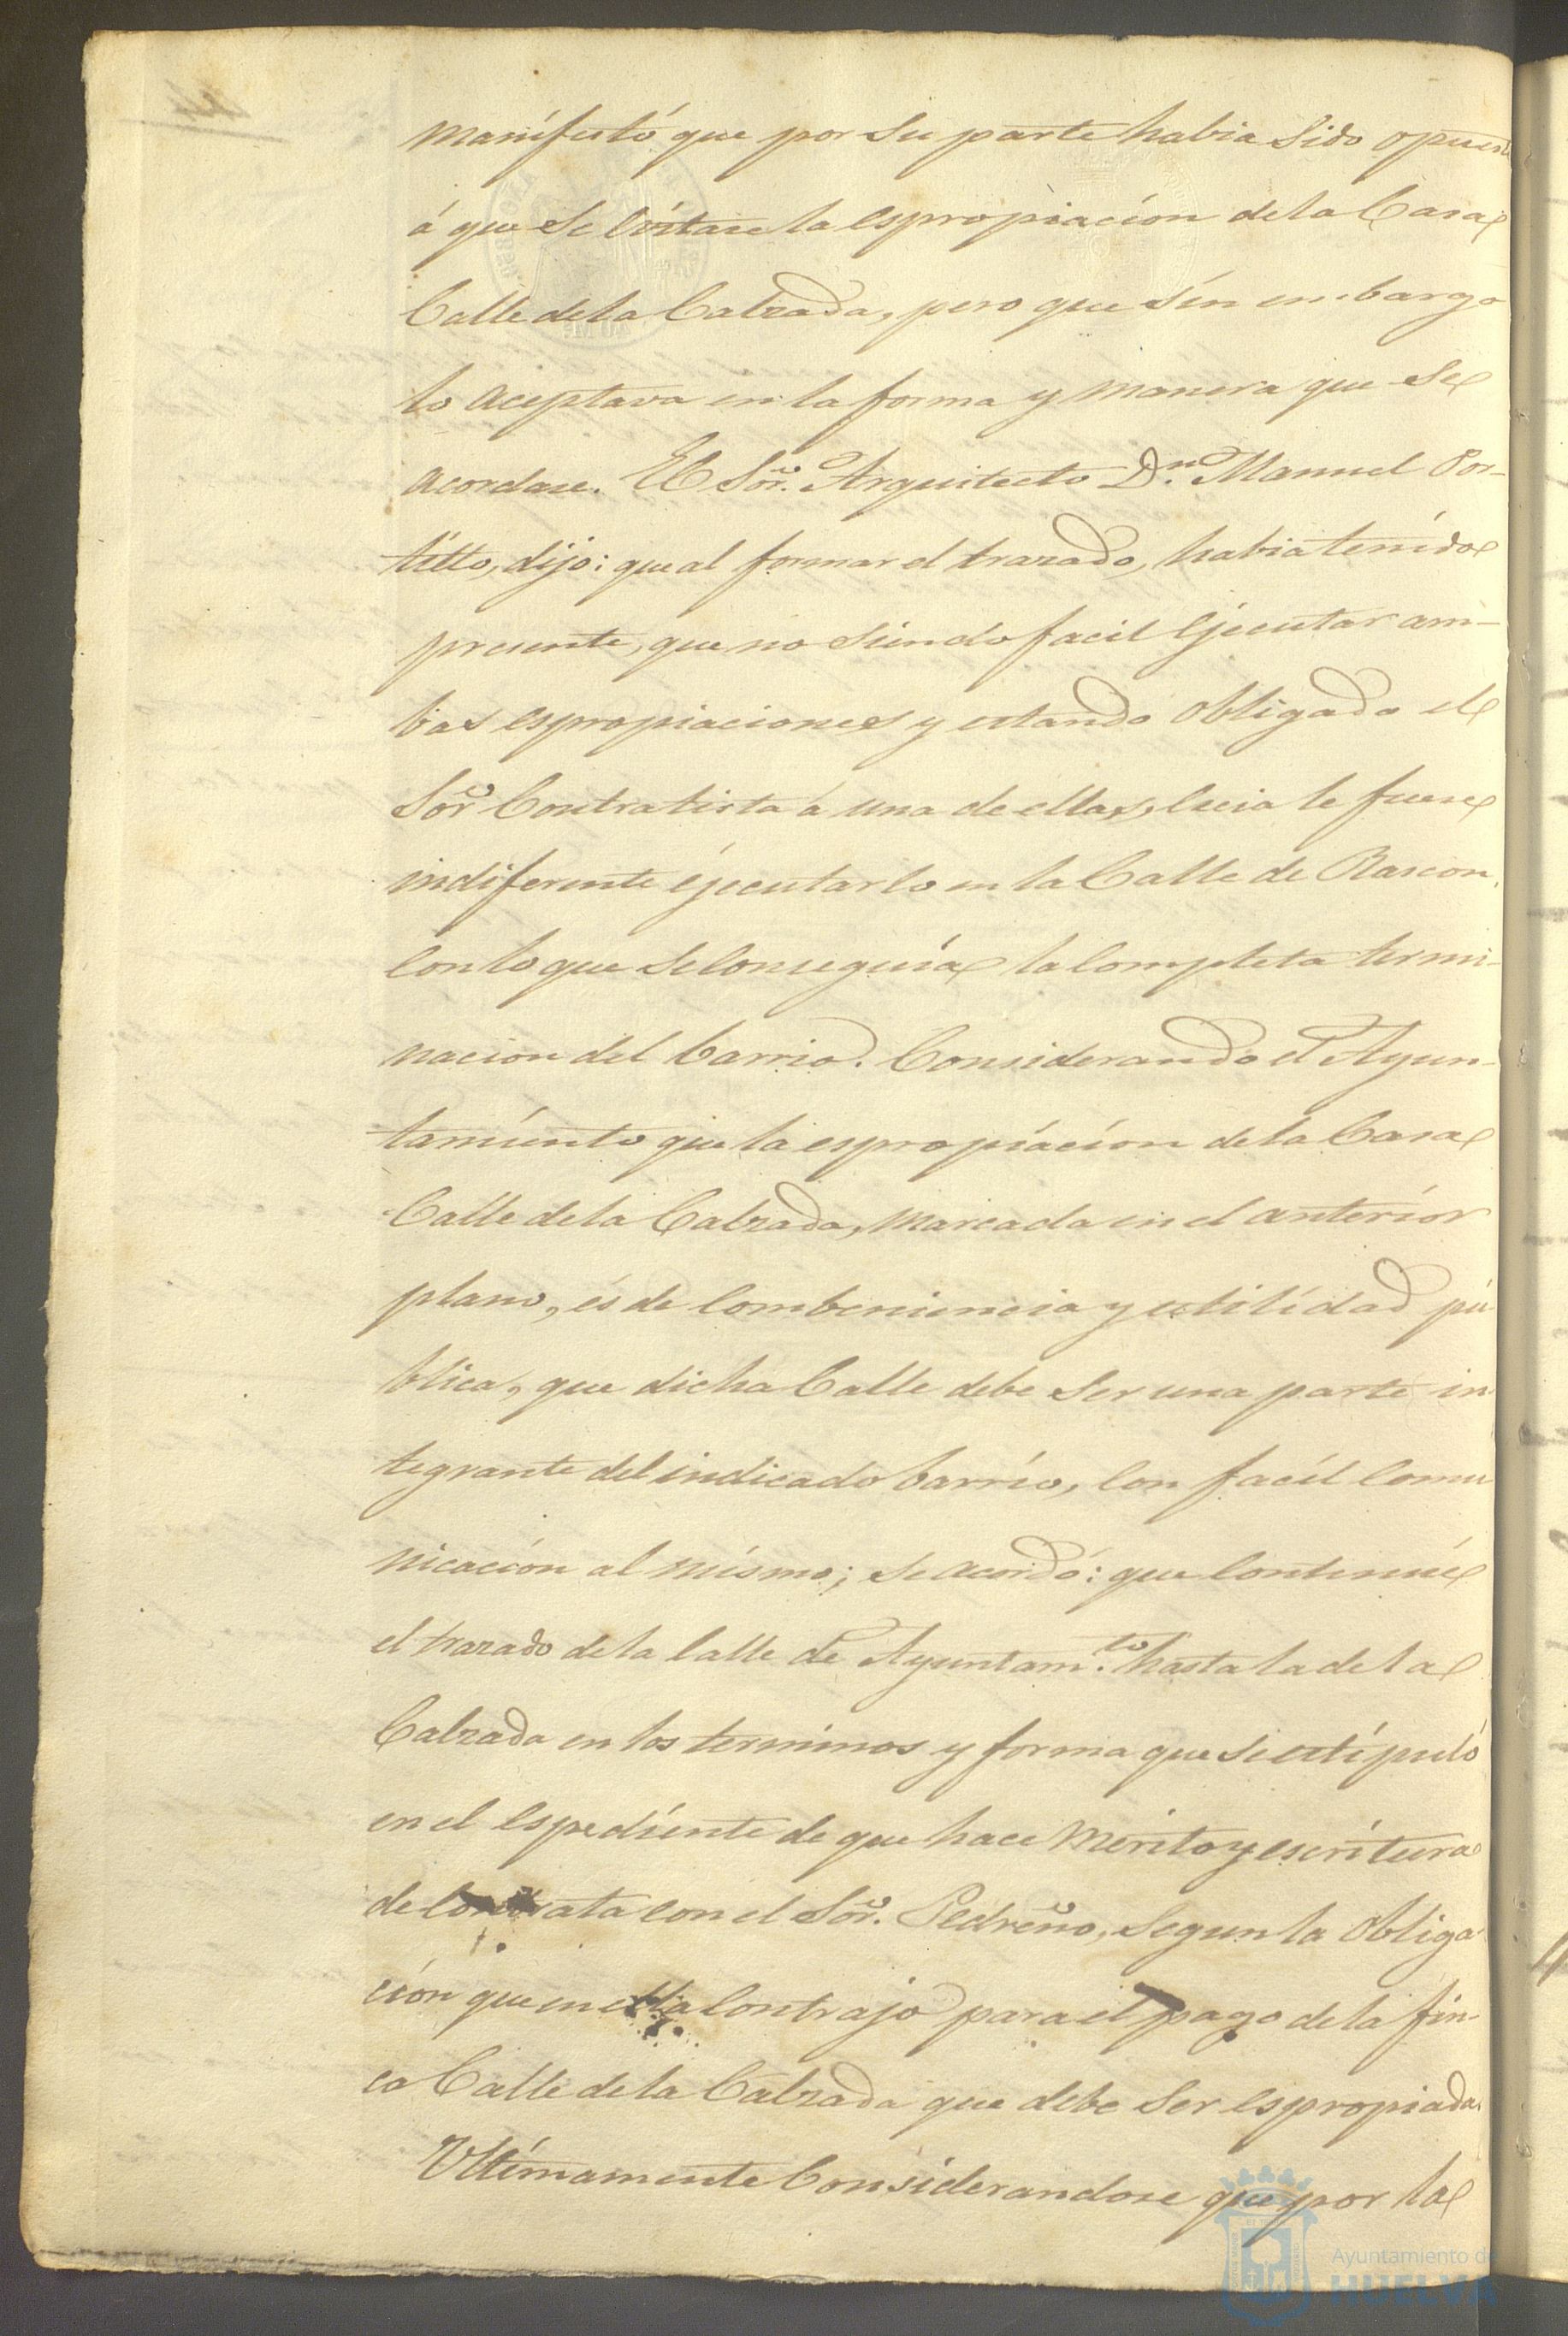 manifestó que por su parte habia sido opuesto
á que se evitase la espropiacion de la Casa
Calle de la Calzada, pero que sin embargo
lo aceptava en la forma y manera que se
acordase. El Sor. Arquitecto Dn. Manuel Por-
tillo, dijo: que al formar el trazado, habia tenido
presente, que no siendo facil ejecutar am-
bas espropiaciones y estando obligado el
Sor Contratista á una de ellas, creia le fuese
indiferente ejecutarlo en la Calle de Rascon,
con lo que se conseguia la completa termi-
nacion del barrio. Considerando el Ayun-
tamiento que la espropiacion de la Casa
Calle de la Calzada, marcada en el anterior
plano, es de combeniencia y utilidad pú-
blica, que dicha Calle debe ser una parte in-
tegrante del indicado barrio, con facil comu
nicacion al mismo; se acordó: que continúe
el trazado de la calle de Ayuntam.to hasta la de la
Calzada en los terminos y forma que se estipuló
en el espediente de que hace merito y escritura
de contrata con el Sor. Pedreño, segun la obliga-
cion que en ella contrajo para el pago de la fin-
ca Calle de la Calzada que debe ser espropiada.
Ultimamente Considerandose que por la
Ayuntamiento de
HUELVA